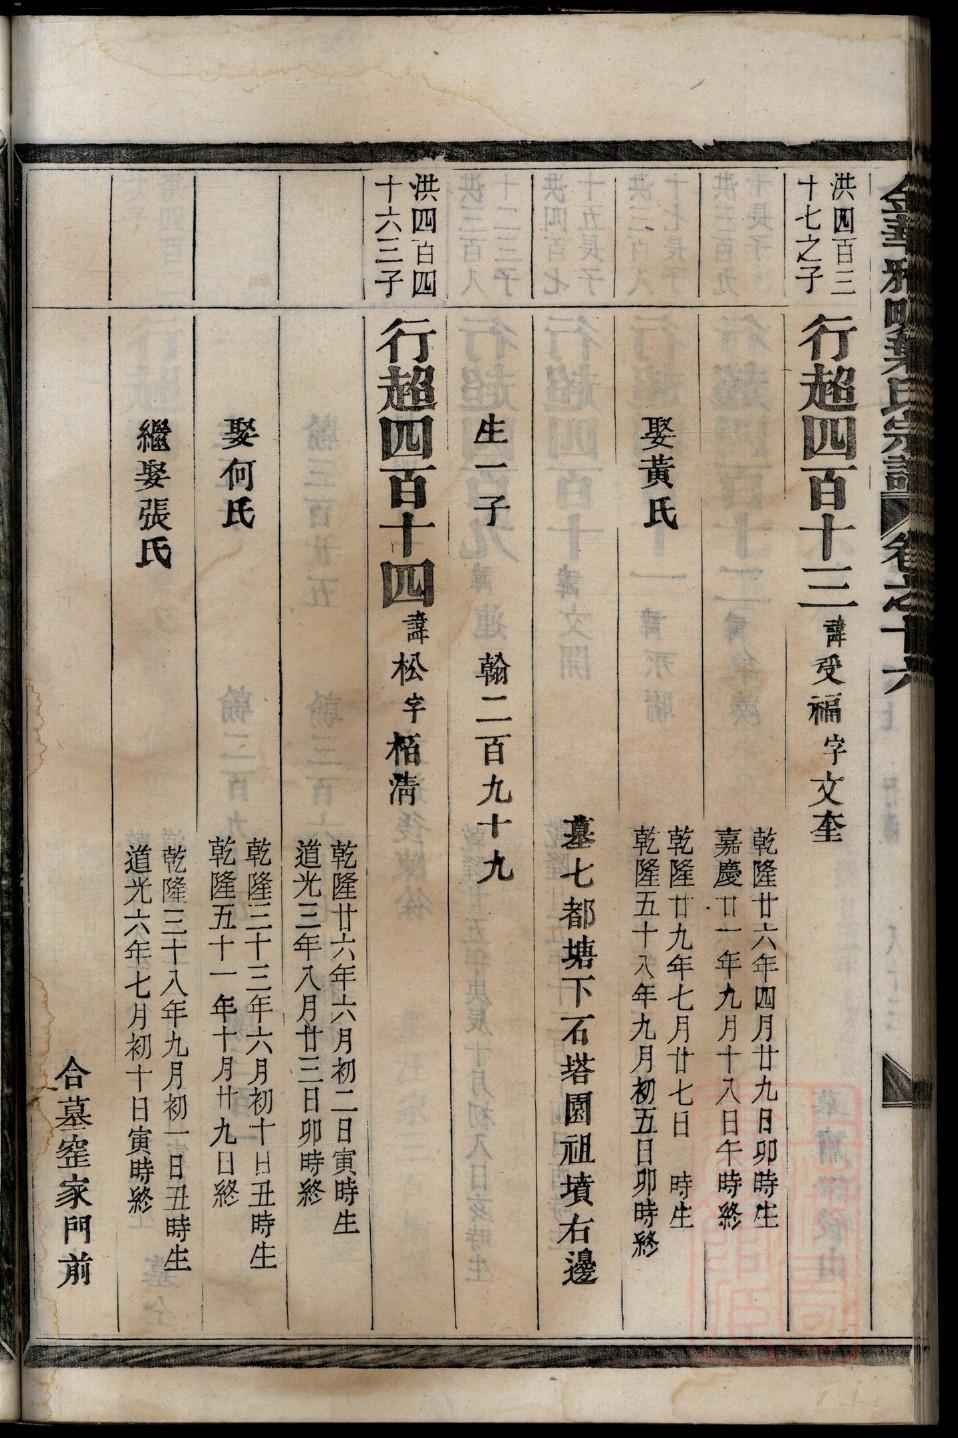 金華雅畈葉氏宗譜 卷之十六
洪四百三
十七之子
行超四百十三 諱受福字文奎
乾隆廿六年四月廿九日卯時生
嘉慶廿一年九月十八日午時終
娶黃氏
乾隆廿九年七月廿七日 時生
乾隆五十八年九月初五日卯時終
墓七都塘下石塔園祖墳右邊
生一子 翰二百九十九
洪四百四
十六三子
行超四百十四 諱松字栢清
乾隆廿六年六月初二日寅時生
道光三年八月廿三日卯時終
娶何氏
乾隆三十三年六月初十日丑時生
乾隆五十一年十月廿九日終
繼娶張氏
乾隆三十八年九月初一日丑時生
道光六年七月初十日寅時終
合墓窰家門前